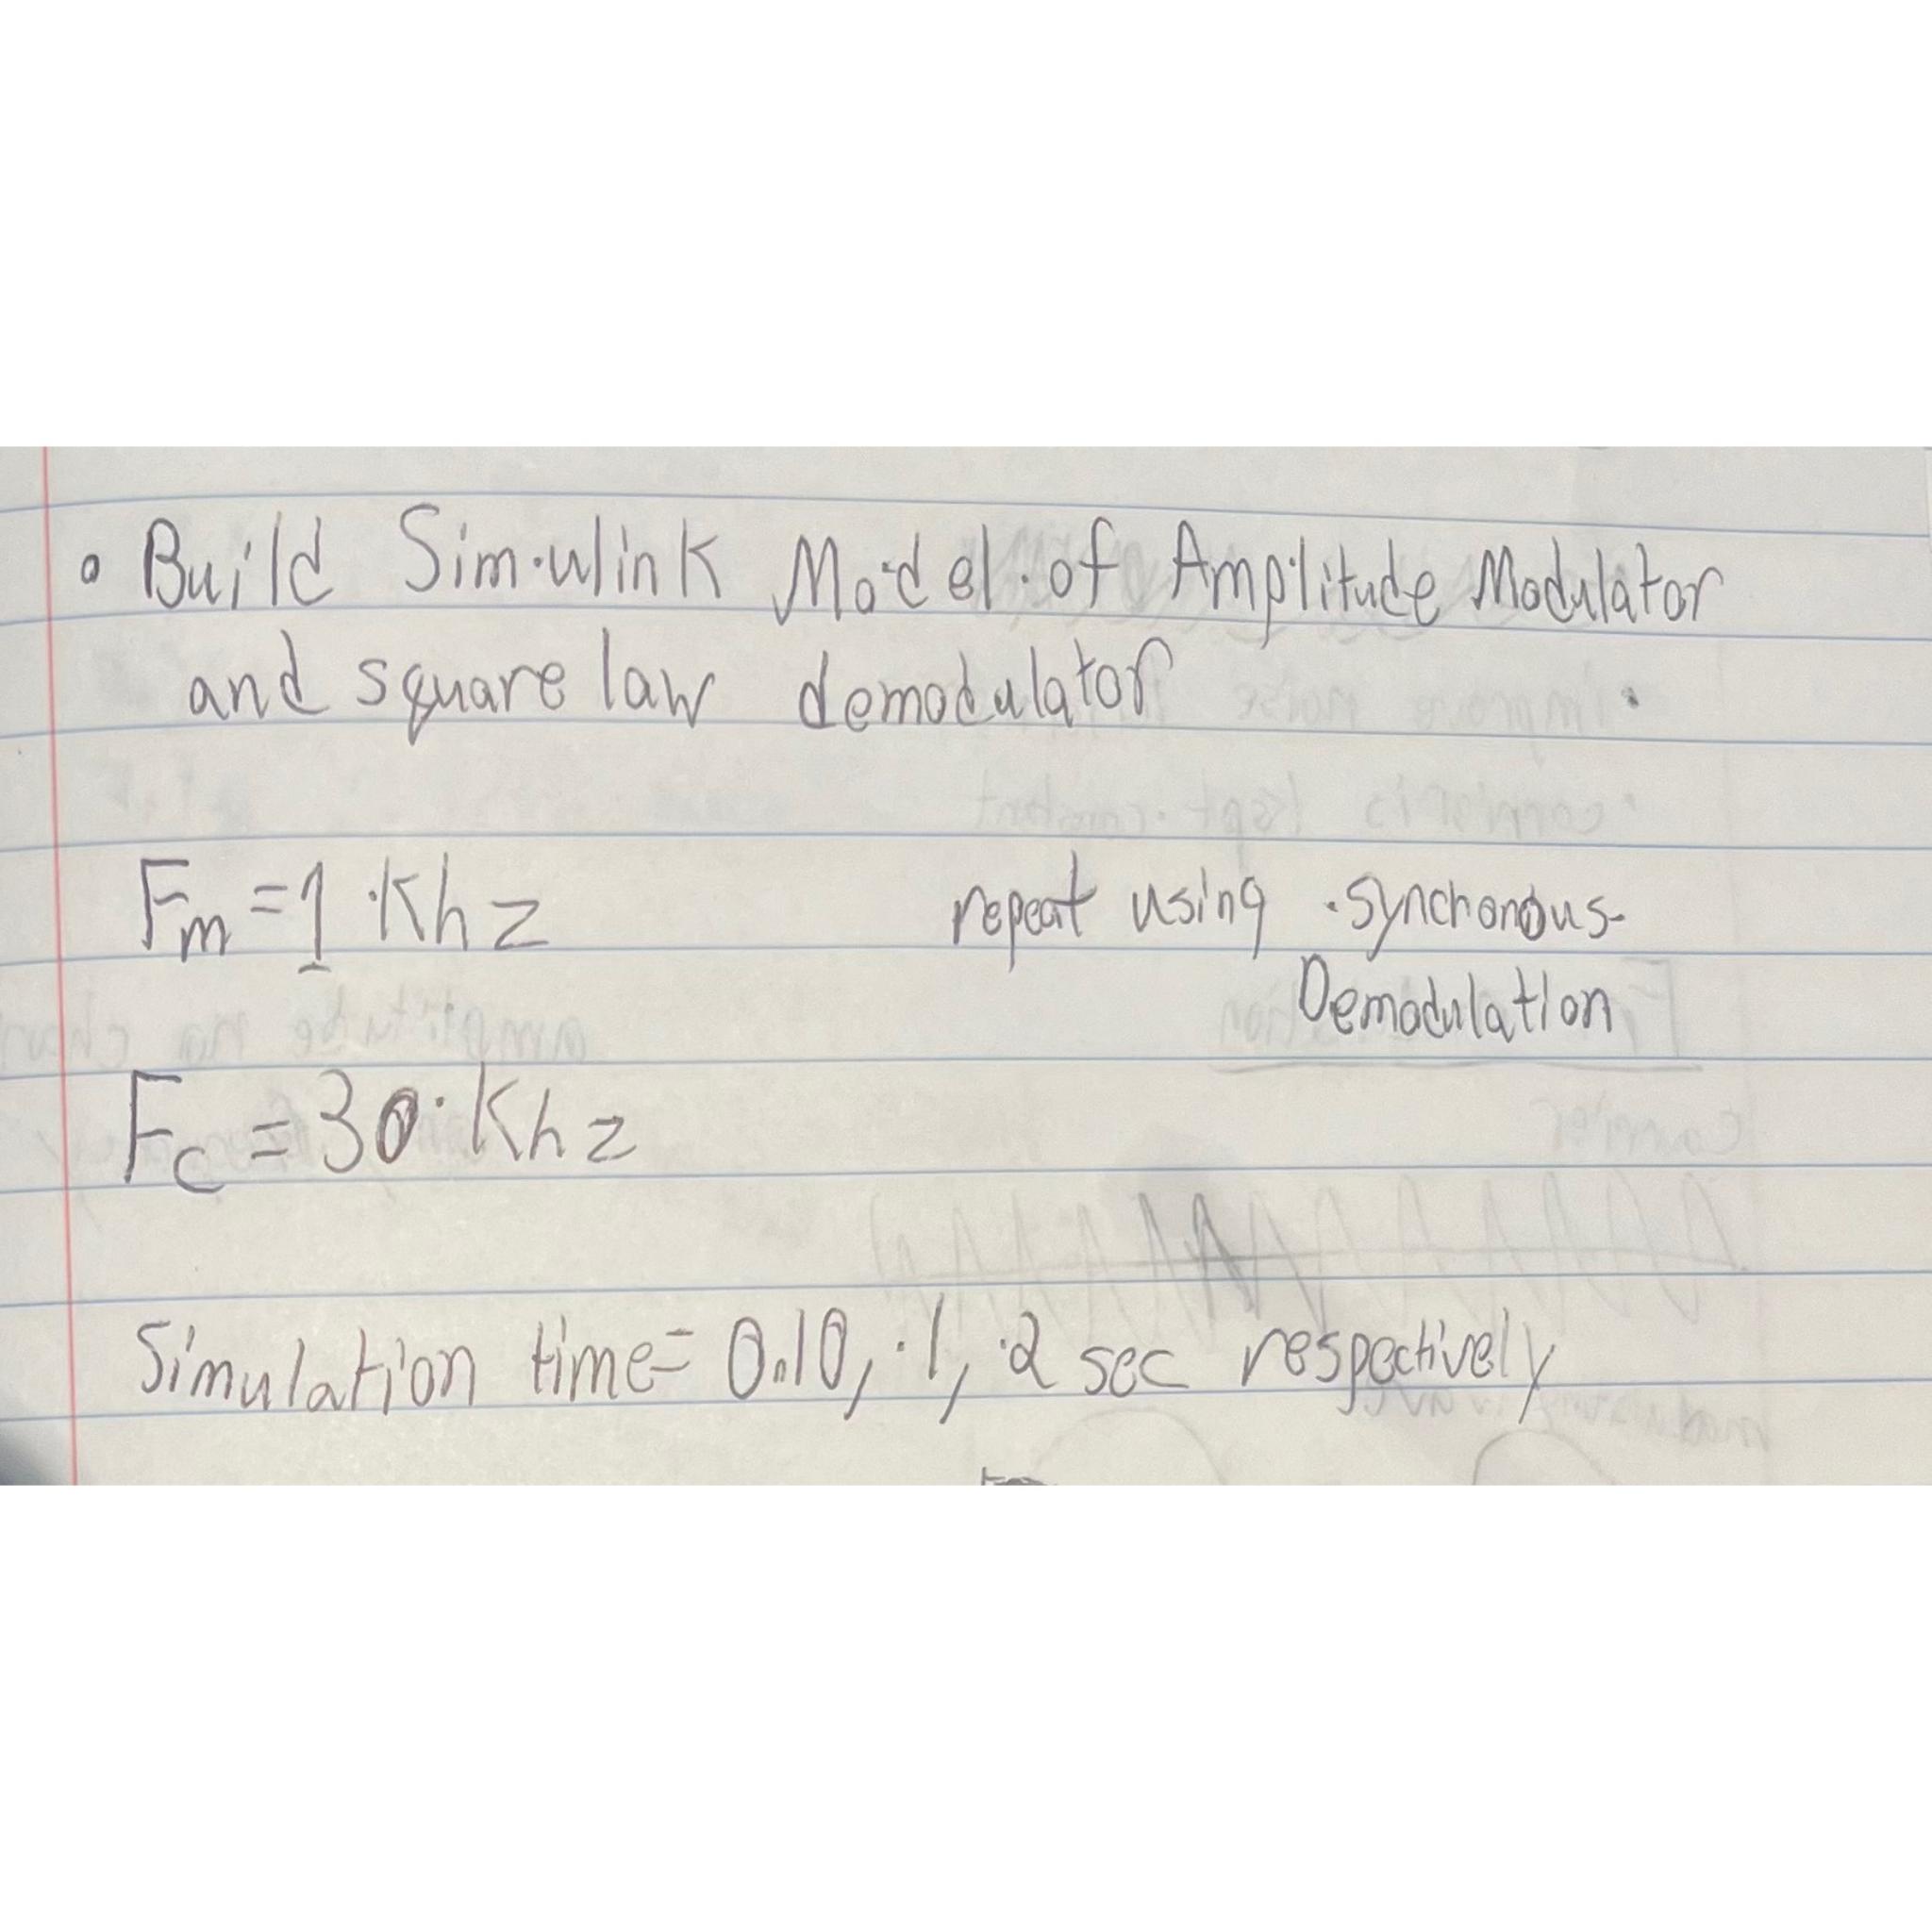 • Build Simulink Model of Amplitude Modulator
and square law demodulator
Fm = 1 Khz
repeat using synchonous
Demodulation
Fc = 30 Khz
Simulation time = 0.10, .1, .2 sec respectively